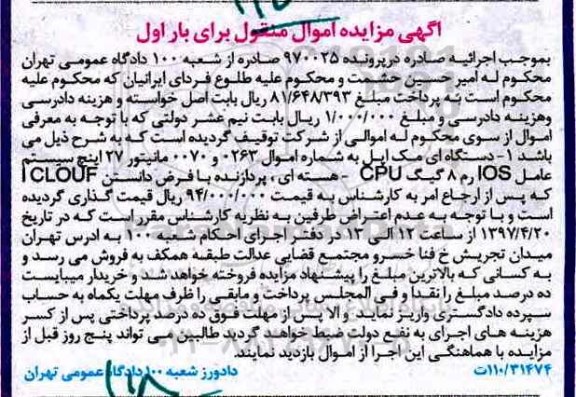 آگهی مزایده اموال منقول برای بار اول
بموجب اجرائیه صادره درپرونده ۹۷۰۰۲۵ صادره از شعبه ۱۰۰ دادگاه عمومی تهران
محکوم له امیر حسین حشمت و محکوم علیه طلوع فردای ایرانیان که محکوم علیه
محکوم است به پرداخت مبلغ ۸۱/۶۴۸/۳۹۳ ریال بابت اصل خواسته و هزینه دادرسی
وهزینه دادرسی و مبلغ ۱/۰۰۰/۰۰۰ ریـال بابت نیم عشر دولتی که با توجه به معرفی
اموال از سوی محکوم له اموالی از شرکت توقیف گردیده است که به شرح ذیل می
باشد ۱- دستگاه ای مک اپل به شماره اموال ۰۲۶۳ و ۰۰۷۰ مانیتور ۲۷ اینچ سیستم
عامل IOS رم ۸ گیگ CPU - هسته ای ، پردازنده با فرض دانستن I CLOUF
که پس از ارجاع امر به کارشناس به قیمت ۹۴/۰۰۰/۰۰۰ ریال قیمت گذاری گردیده
است و با توجه به عدم اعتراض طرفین به نظریه کارشناس مقرر است که در تاریخ
۱۳۹۷/۴/۲۰ از ساعت ۱۲ الی ۱۳ در دفتر اجرای احکام شعبه ۱۰۰ به ادرس تهران
میدان تجریش خ فنا خسرو مجتمع قضایی عدالت طبقه همکف به فروش می رسد و
به کسانی که بالاترین مبلغ را پیشنهاد مزایده فروخته خواهد شد و خریدار میبایست
ده درصد مبلغ را نقدا و فی المجلس پرداخت و مابقی را ظرف مهلت یکماه به حساب
سپرده دادگستری واریز نماید و الا پس از مهلت فوق ده درصد پرداختی پس از کسر
هزینه های اجرای به نفع دولت ضبط خواهد گردید طالبین می تواند پنج روز قبل از
مزایده با هماهنگی این اجرا از اموال بازدید نمایند.
۱۱۰/۳۱۴۷۴ت
دادورز شعبه ۱۰۰ دادگاه عمومی تهران